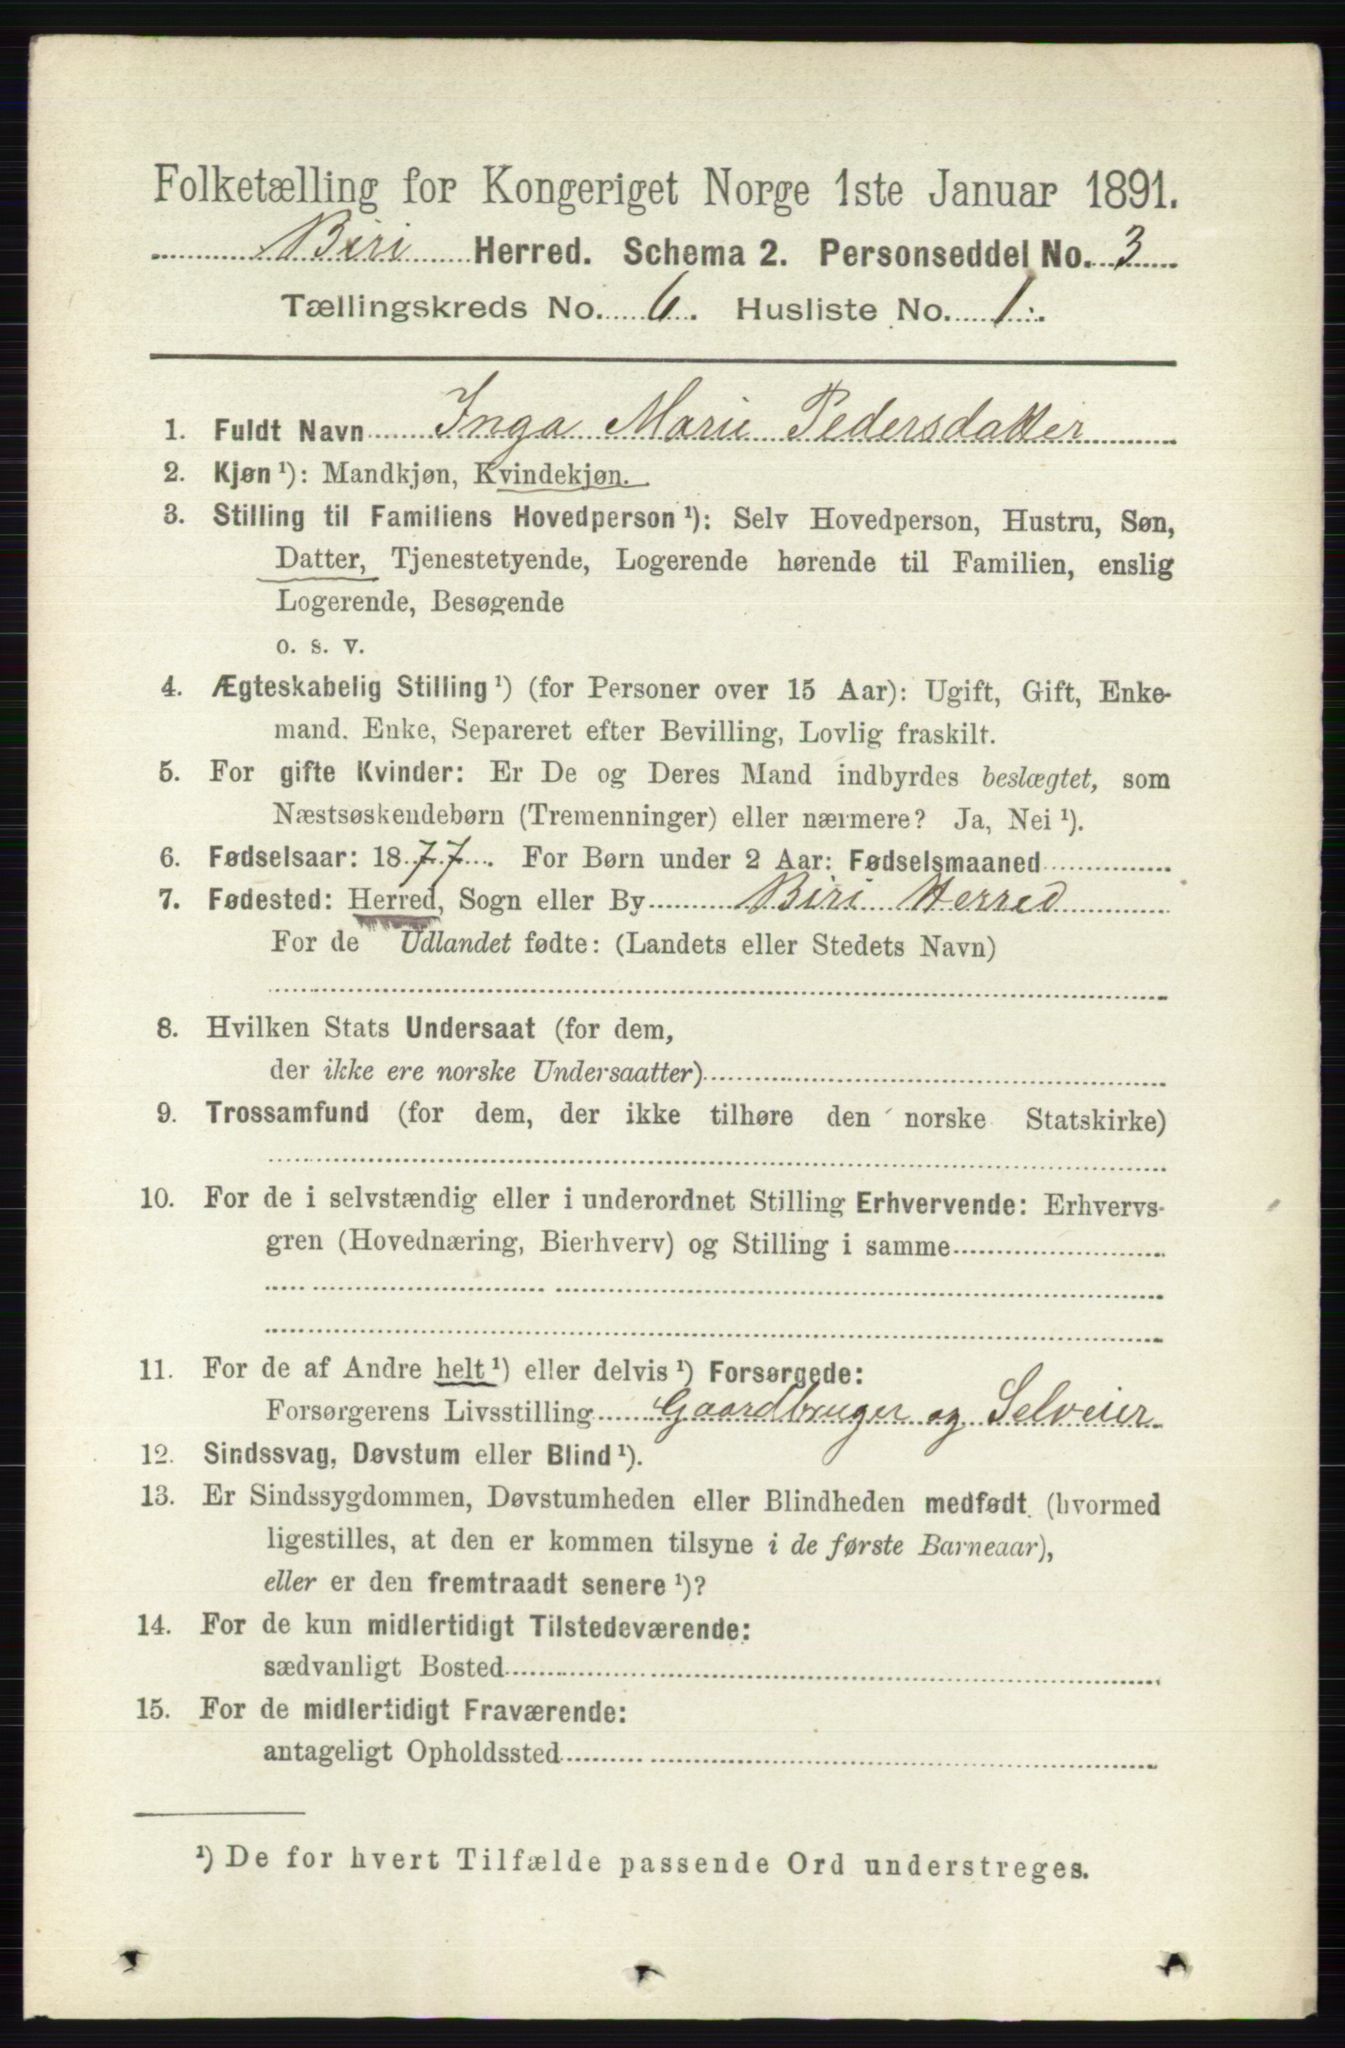 Folketælling for Kongeriget Norge 1ste Januar 1891.
Biri Herred. Schema 2. Personseddel No. 3
Tællingskreds No. 6. Husliste No. 1.
1. Fuldt Navn Inga Marie Pedersdatter
2. Kjøn ¹): Mandkjøn, Kvindekjøn.
3. Stilling til Familiens Hovedperson ¹): Selv Hovedperson, Hustru, Søn,
Datter, Tjenestetyende, Logerende hørende til Familien, enslig
Logerende, Besøgende
o. s. v.
4. Ægteskabelig Stilling ¹) (for Personer over 15 Aar): Ugift, Gift, Enke-
mand. Enke, Separeret efter Bevilling, Lovlig fraskilt.
5. For gifte Kvinder: Er De og Deres Mand indbyrdes beslægtet, som
Næstsøskendebørn (Tremenninger) eller nærmere? Ja, Nei ¹).
6. Fødselsaar: 1877. For Børn under 2 Aar: Fødselsmaaned
7. Fødested: Herred, Sogn eller By Biri Herred
For de Udlandet fødte: (Landets eller Stedets Navn)
8. Hvilken Stats Undersaat (for dem,
der ikke ere norske Undersaatter)
9. Trossamfund (for dem, der ikke tilhøre den norske Statskirke)
10. For de i selvstændig eller i underordnet Stilling Erhvervende: Erhvervs-
gren (Hovednæring, Bierhverv) og Stilling i samme
11. For de af Andre helt ¹) eller delvis ¹) Forsørgede:
Forsørgerens Livsstilling Gaardbruger og Selveier
12. Sindssvag, Døvstum eller Blind ¹).
13. Er Sindssygdommen, Døvstumheden eller Blindheden medfødt (hvormed
ligestilles, at den er kommen tilsyne i de første Barneaar),
eller er den fremtraadt senere ¹)?
14. For de kun midlertidigt Tilstedeværende:
sædvanligt Bosted
15. For de midlertidigt Fraværende:
antageligt Opholdssted
¹) De for hvert Tilfælde passende Ord understreges.